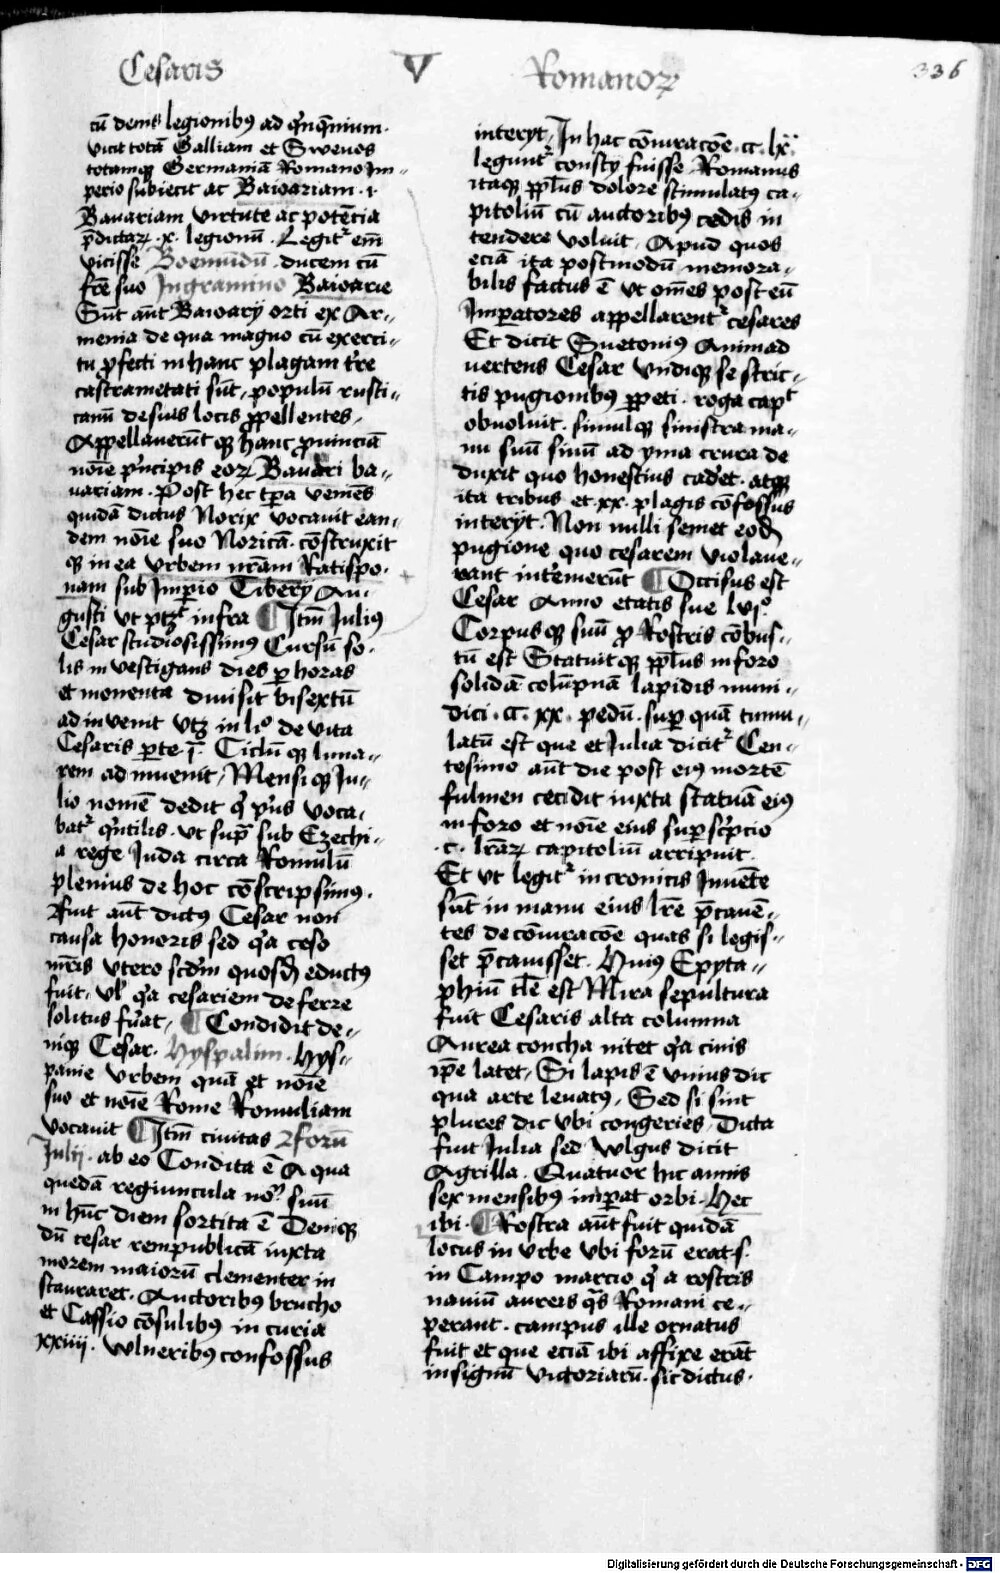 Cesaris V Romanoꝝ 336
cū dem̄s legionibꝰ ad qͥnqēnium.
vicit totā Galliam et Swevos
totamqꝫ Germaniā Romano Im-
perio subiecit ac Baioariam .i.
Bauariam virtute ac potētia
p̄dictaꝝ .x. legionū . Legitᷣ em̄
vicisse Boemūdū . ducem cū
fr̄e suo Ingramino Baioarie
Sūt aūt Baioarÿ orti ex Ar-
menia de qua magno cū exerci-
tu ꝓfecti in hanc plagam tr̄e
castrametati sūt, populū rusti-
canū de suis locis ꝓpellentes,
Appellauerūtqꝫ hanc ꝓuinciā
noīe pͥncipis eoꝝ Bauari ba-
uariam . Post hec tꝑa veniēs
quidā dictus Norix vocauit ean-
dem noīe suo Noricā . cōstruxit
qꝫ in ea vrbem nr̄am Ratispo-
nam sub Imꝑio Tiberÿ Au-
gusti vt ptꝫ infra ¶ Itm̄ Julius
Cesar studiosissimꝰ Cursū so-
lis in vestigans dies ꝑ horas
et monenta diuisit bisextū
ad in venit vtꝫ in liͦ de vita
Cesaris ꝑte .ī. Ciclū qꝫ luna-
rem ad inuenit, Mensi qꝫ Ju-
lio nomē dedit qͥ pͥus voca-
batᷣ qͥntilis . vt supᷓ sub Ezechi-
a rege Juda circa Romulū
plenius de hoc cōscripsimꝰ.
Fuit aūt dictꝰ Cesar non
causa honoris sed qͥa ceso
mr̄is vtero scd̄m quosd̄ eductꝰ
fuit, vl̓ qͥa cesariem de ferre
solitus fūat, ¶ Condidit de-
niqꝫ Cesar . Hyspalim . Hys-
panie vrbem quā et noīe
suo et noīe Rome Romuliam
vocauit ¶ Itm̄ ciuitas forū
Julij . ab eo Condita ē A qua
quedā regiuncula noͫ suū
in hūc diem sortita ē Deniqꝫ
dū cesar rempublicā iuxta
morem maiorū clementer in
stauraret . Auctoribꝰ brucho
et Cassio cōsulibꝰ in curia
xxiiij . wlneribꝰ confossus
interÿt, In hac cōiuracōe . cc . lx.
leguntᷣ conscÿ fuisse Romanus
itaqꝫ pplūs dolore stimulatꝰ ca-
pitoliū cū auctoribꝰ cedis in
tendere voluit, Apud quos
eciā ita postmodū memora-
bilis factus ē vt om̄es post eū
Imꝑatores appellarentᷣ cesares
Et dicit Suetoniꝰ Animad
vertens Cesar vndiqꝫ se stric-
tis pugionibꝰ ꝑpeti . toga capᷣt
obuoluit . simulqꝫ sinistra ma-
nu suū sinū ad yma crura de
duxit quo honestius cadet . atqꝫ
ita tribus et .xx. plagis cōfossus
interÿt . Non nulli semet eod̄
pugione quo cesarem violaue-
rant intemerūt ¶ Occisus est
Cesar Anno etatis sue lviͦ
Corpusqꝫ suū ꝓ Rostris cōbus-
tū est Statuitqꝫ pplūs in foro
solidā colūpnā lapidis numi-
dici . cc . xx . pedū . suꝑ quā tumu-
latū est que et Julia dicitᷣ Cen-
tesimo aūt die post eiꝰ mortē
fulmen cecidit iuxta statuā eiꝰ
in foro et noīe eius suꝑscͥptio
.c. lr̄aꝝ capitoliū arripuit
Et vt legitᷣ in cronicis Inuēte
sūt in manu eius lr̄e p̄cauē-
tes de cōiuracōe quas si legis-
set p̄cauisset . Huiꝰ Epyta-
phiū tl̄e est Mira sepultura
fuit Cesaris alta columna
Aurea concha nitet qͥa ciuis
ip̄e latet, Si lapis ē vnius dic
qua arte leuatꝰ, Sed si sint
plures dic vbi congeries, Dicta
fuit Julia sed wlgus dicit
Agrilla . Quatuor hic annis
sex mensibꝰ imꝑat orbi . Hec
ibi . ¶ Rostra aūt fuit quidā
locus in vrbe vbi forū erat .s.
in Campo marcio qͥ a rostris
nauiū aureis qͣs Romani ce-
perant . campus ille ornatus
fuit et que eciā ibi affixe erāt
in signū victoriarū . sic dictus.
Digitalisierung gefördert durch die Deutsche Forschungsgemeinschaft - DFG